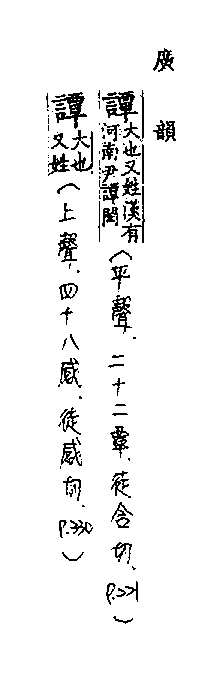 廣韻
譚大也又姓漢有河南尹譚閎(平聲、二十二覃、徒含切、P.221)
譚大也又姓(上聲、四十八感、徒感切、P.330)